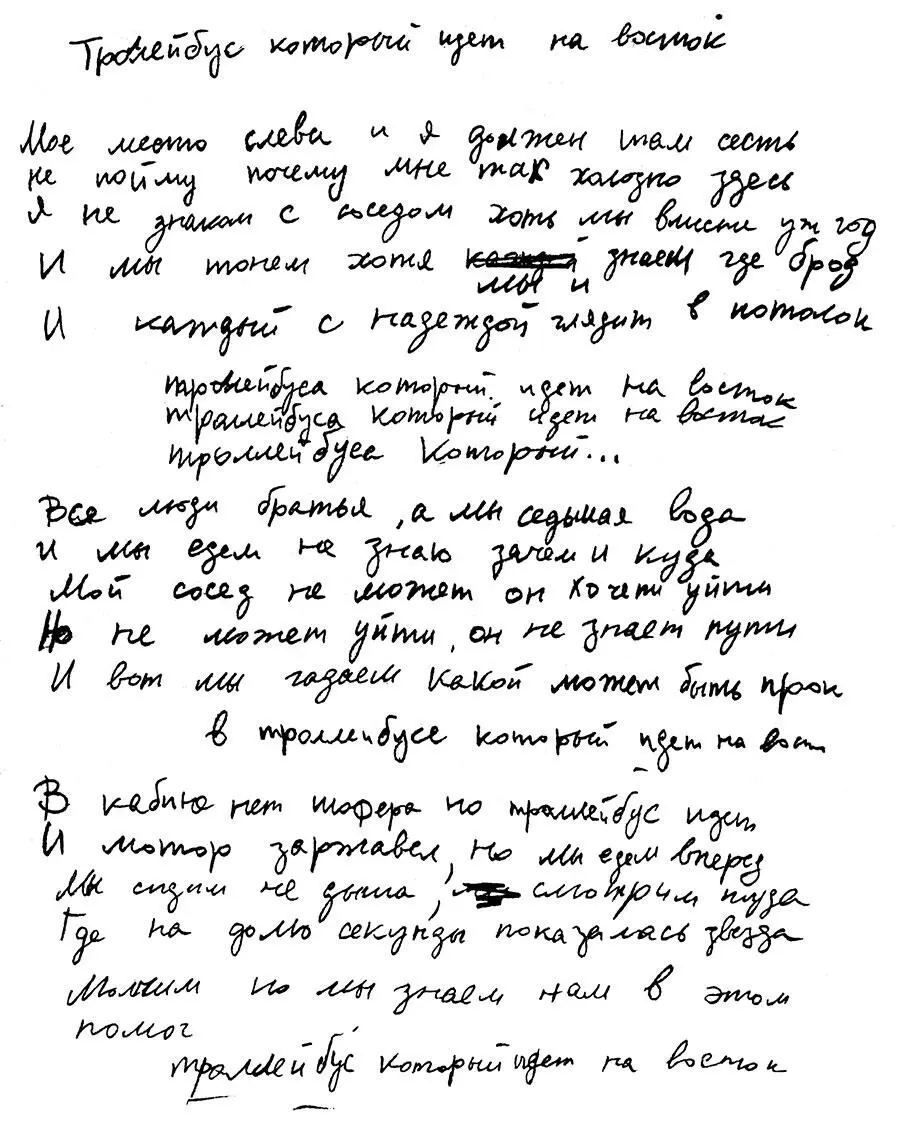 Тролейбус который идет на восток
Мое место слева и я должен там сесть
не пойму почему мне так холодно здесь
Я не знаком с соседом хоть мы вместе уж год
И мы тонем хотя знаем где брод
мы и
И каждый с надеждой глядит в потолок
тролейбуса который идет на восток
траллейбуса который идет на восток
троллейбуса который...
Все люди братья, а мы седьмая вода
и мы едем не знаю зачем и куда
Мой сосед не может он хочет уйти
Но не может уйти, он не знает пути
И вот мы гадаем какой может быть прок
в троллейбусе который идет на вост
В кабине нет шофера но троллейбус идет
И мотор заржавел, но мы едем вперед
Мы сидим не дыша, смотрим туда
Где на долю секунды показалась звезда
Молчим но мы знаем нам в этом
помог
траллейбус который идет на восток